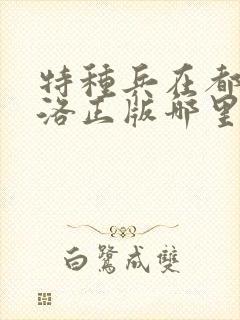 特種兵在都
洛正版哪里
白鷺成雙